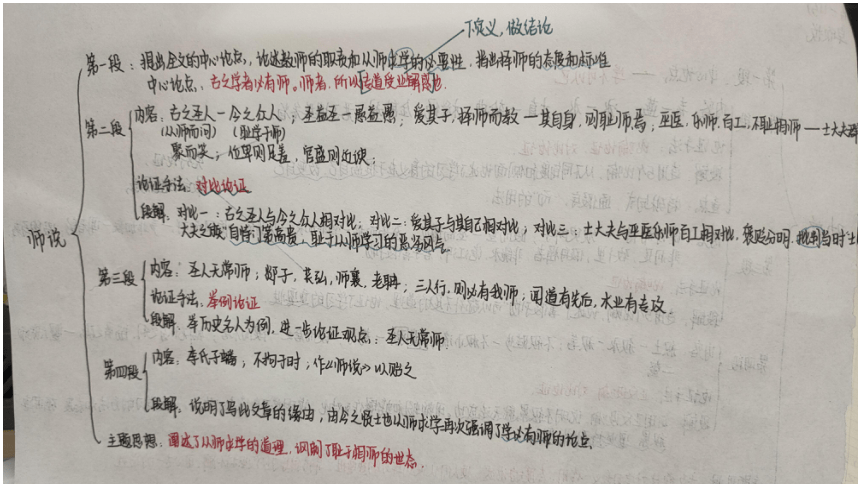 下定义,做结论
第一段:提出全文的中心论点,论述教师的职责和从师求学的必要性,指出择师的态度和标准
中心论点:古之学者必有师。师者,所以传道受业解惑也.
第二段
内容:古之圣人—今之众人;圣益圣—愚益愚;爱其子,择师而教—其自身,则耻师焉;巫医,乐师,百工,不耻相师——士大夫群
(从师而问) (耻学于师)
聚而笑;位卑则足羞,官盛则近谀;
论证手法:对比论证
段解:对比一:古之圣人与今之众人相对比;对比二:爱其子与其自己相对比;对比三:士大夫与巫医乐师百工相对比,褒贬分明,批判当时士
大夫之族自恃门第高贵,耻于从师学习的
师说
第三段
内容:圣人无常师;郯子,苌弘,师襄,老聃;三人行,则必有我师;闻道有先后,术业有专攻
论证手法:举例论证
段解:举历史名人为例,进一步论证观点:圣人无常师.
第四段
内容:李氏子蟠,不拘于时,作《师说》以贻之
段解:说明了写此文章的缘由,由今之 士也从师求学再次强调了学必有师的论点.
主题思想:阐述了从师求学的道理,讽刺了耻于相师的世态.